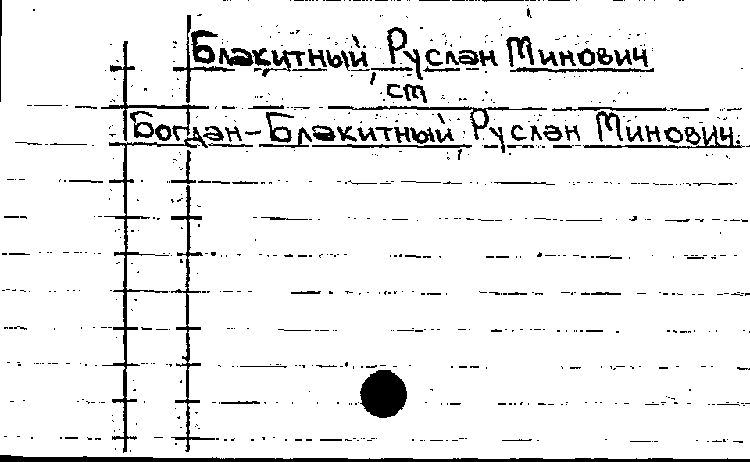 Блакитный, Руслан Минович
ст
Богдан-Блакитный, Руслан Минович.